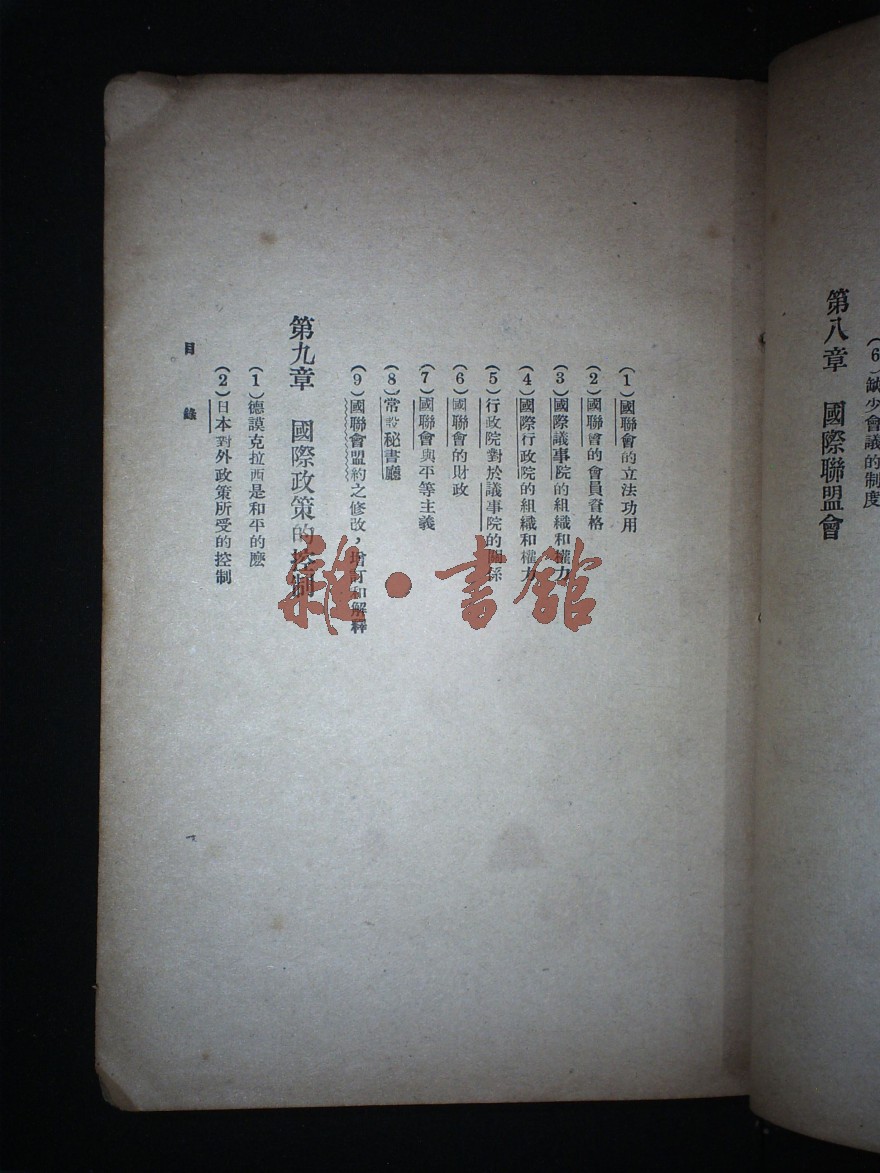 (6)缺少會議的制度
第八章　國際聯盟會
(1)國聯會的立法功用
(2)國聯會的會員資格
(3)國際議事院的組織和權力
(4)國際行政院的組織和權力
(5)行政院對於議事院的關係
(6)國聯會的財政
(7)國聯會與平等主義
(8)常設祕書廳
(9)國聯會盟約之修改，增訂和解釋
第九章　國際政策的控制
(1)德謨克拉西是和平的麽
(2)日本對外政策所受的控制
目錄
雜·書館